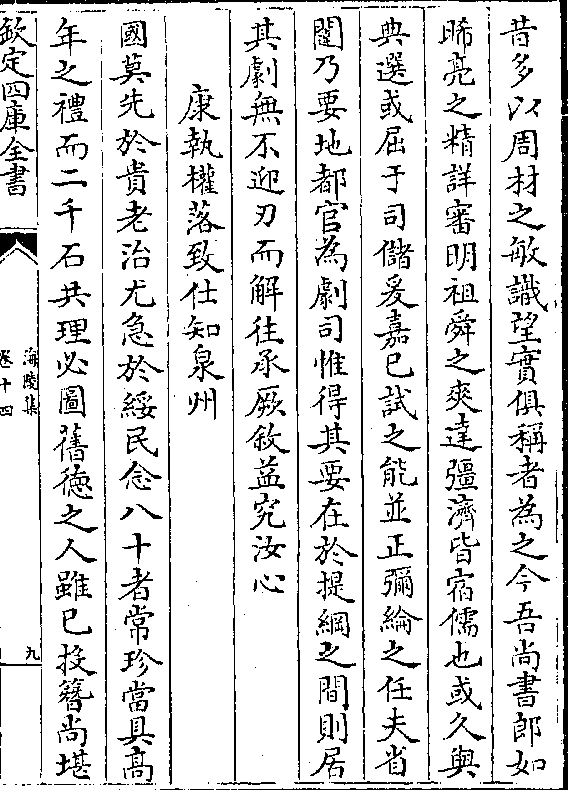 昔多以周材之敏識望實俱稱者為之今吾尚書郎如
晞亮之精詳審明祖舜之爽達彊濟皆宿儒也或久與
典選或屈于司儲爰嘉已試之能並正彌綸之任夫省
闥乃要地都官為劇司惟得其要在於提綱之間則居
其劇無不迎刃而解往承厥敘益究汝心
康執權落致仕知泉州
國莫先於貴老治尤急於綏民念八十者常珍當具高
年之禮而二千石共理必圖舊德之人雖已投簪尚堪
欽定四庫全書
海陵集
卷十四
九